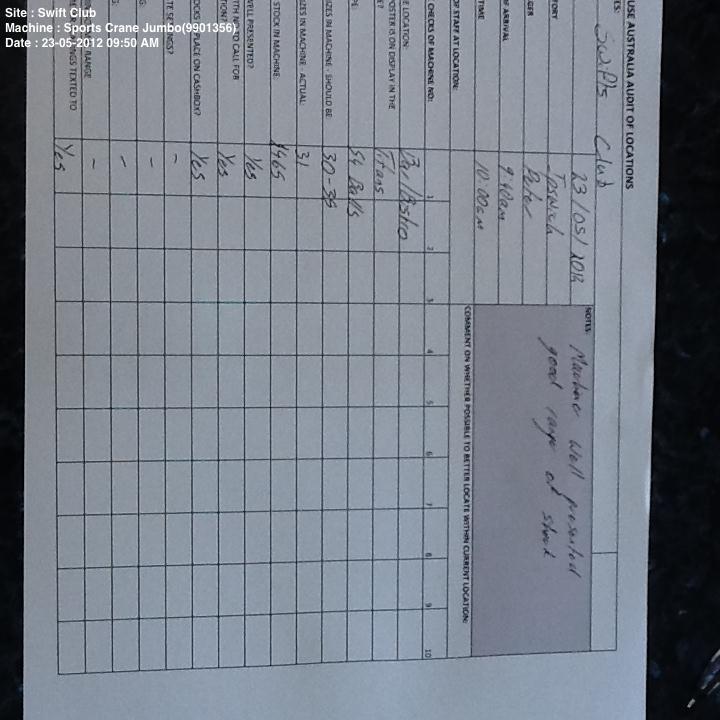 Site : Swift Club
Machine : Sports Crane Jumbo(9901356)
Date : 23-05-2012 09:50 AM
USE AUSTRALIA AUDIT OF LOCATIONS
Swifts Club
23/05/2012
NOTES: Machine well presented
good range of stock
TORY Ipswich
GER Peter
OF ARRIVAL 9:40am
TIME 10:00am
OF STAFF AT LOCATION:
COMMENT ON WHETHER POSSIBLE TO BETTER LOCATE WITHIN CURRENT LOCATION:
CHECKS OF MACHINE NO: 1 2 3 4 5 6 7 8 9 10
E LOCATION: Bar/Bistro
OSTER IS ON DISPLAY IN THE Titans
PE: S4 Balls
IZES IN MACHINE - SHOULD BE: 30-35
ZES IN MACHINE - ACTUAL: 31
STOCK IN MACHINE: 1465
VELL PRESENTED? Yes
TH NO TO CALL FOR Yes
OCKS IN PLACE ON CASHBOX? Yes
TE SETTINGS? -
G: -
G: -
RANGE -
NGS TEXTED TO Yes